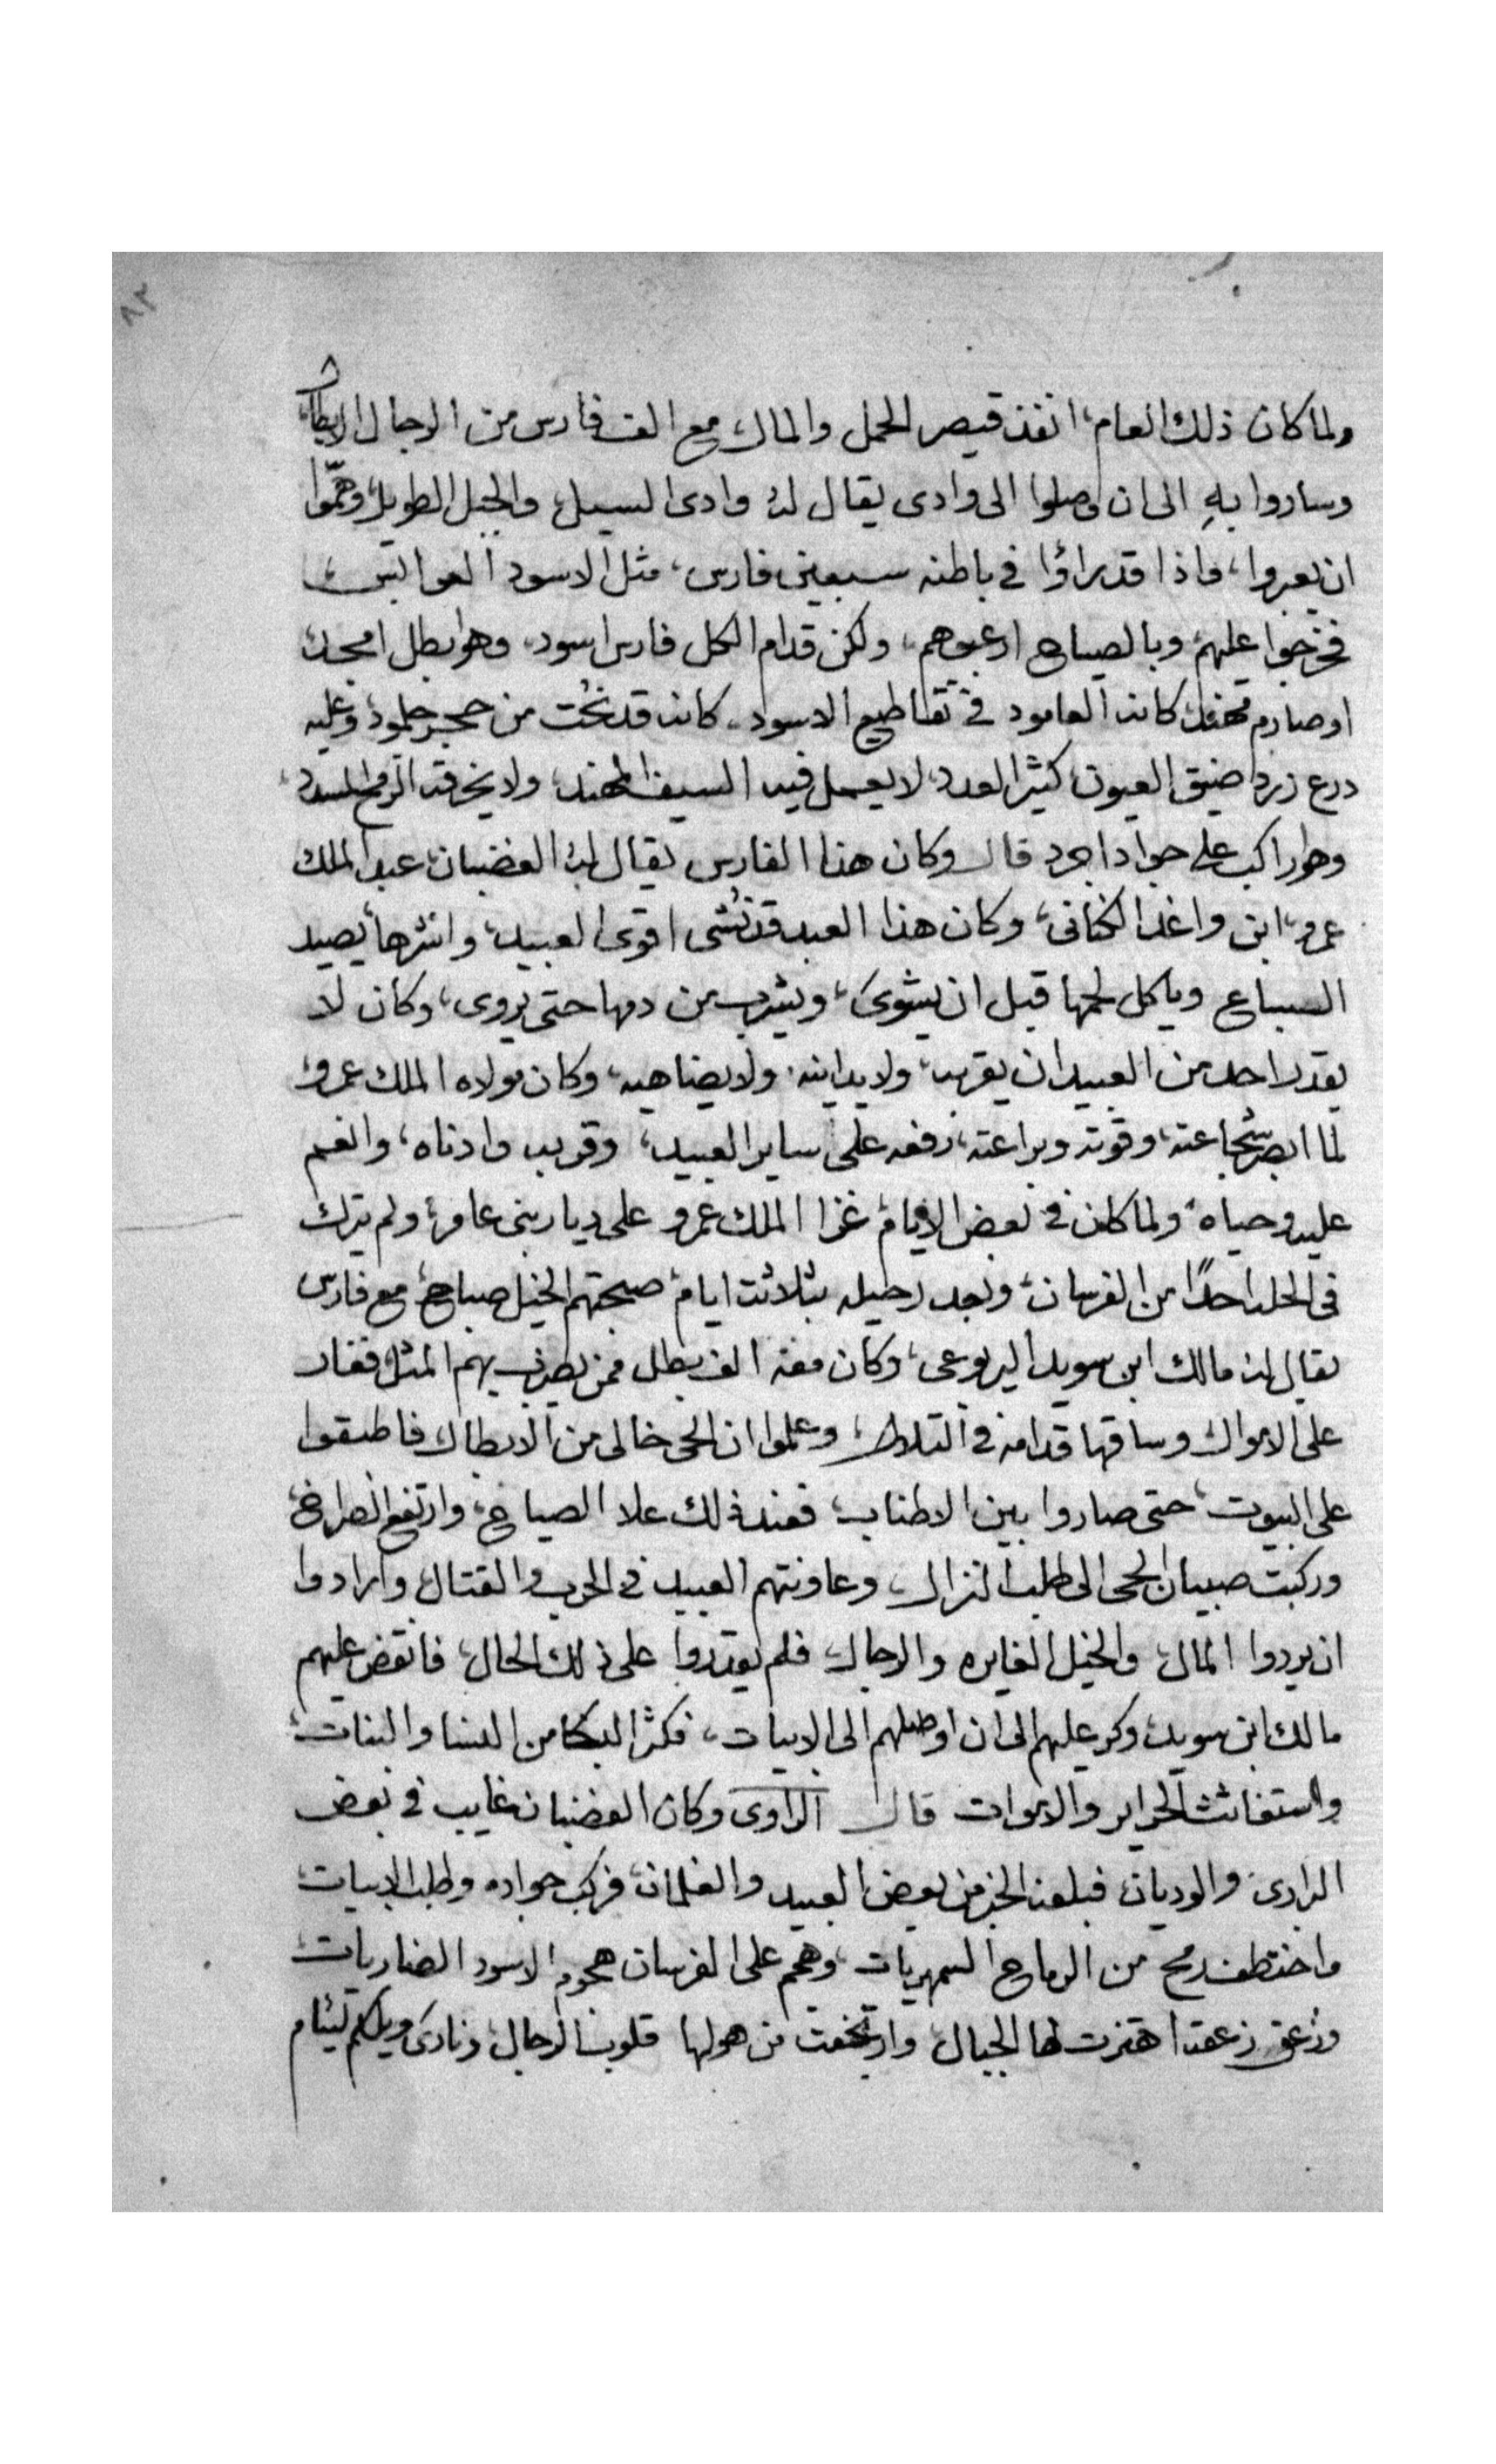 ٨٣
ولما كان ذلك العام، انفذ قيصر الحمل والمال، مع الف فارس من الرجال الابطال
وساروا بهِ الى ان وصلوا الى وادى يقال له وادى السيل، والجبل الطويل، وهمّوا
ان يعبروا، واذا قد راؤا في باطنه سبعين فارس، مثل الاسود العوابس،
فخرجوا عليهم، وبالصياح ارعبوهم، ولكن قدام الكل فارس اسود، وهو بطل امجد،
او صارم كانه العامود في تقاطيع الاسود، كانه قد نحُت من حجر جلمود، وعليه
درع زرد ضيق العيون، كثير العدد، لا يعمل فيه السيف المهند، ولا يخرقه الرمح المسدد،
وهو راكب على جواد اجرد قال وكان هذا الفارس يقال له الغضبان، عبد الملك
عمرو، ابن واغد الكنانى، وكان هذا العبد قد نُشى اقوى العبيد، واشرها، يصيد
السباع وياكل لحمها قبل ان يشوىَ، ويشرب من دمها حتى يروى، وكان لا
يقدر احد من العبيد ان يقربه، ولا يدانيه، ولا يضاهيه، وكان مولاه الملك عمرو،
لما ابصر شجاعته، وقوته وبراعته، رفعه على ساير العبيد، وقربه وادناه، وانعم
عليه وحياه، ولما كان في بعض الايام، غزا الملك عمرو على ديار بنى عامر، ولم يترك
فى الحله احدًا من الفرسان، وبعد رحيله بثلاثت ايام، صبحتهم الخيل صباح، مع فارس
يقال له مالك ابن سويد اليربوعى، وكان معه الف بطل ممن يضرب بهم المثل، فغار
على الاموال وساقها قدامه في التلال، وعلموا ان الحى خالى من الابطال فاطبقوا
على البيوت، حتى صاروا بين الاطناب، فعند ذلك علا الصياح، وارتفع الصراخ،
وركبت صبيان الحى الى طلب النزال، وعاونتهم العبيد في الحرب والقتال، وارادوا
ان يردوا المال، والخيل الغايره والرجال، فلم يقدروا على ذلك الحال، فانقض عليهم
مالك ابن سويد، وكر عليهم الى ان اوصلهم الى الابيات، فكثر البكا من النسا والبنات،
واستغاثت الحراير والاموات قال الراوى وكان الغضبان غايب في بعض
البرارى، والوديان، فبلغه الخبر من بعض العبيد والغلمان، فركب جواده وطلب الابيات،
واختطف رمح من الرماح السمهريات، وهجم على الفرسان هجوم الاسود الضاريات،
وزعق زعقة اهتزت لها الجبال، وارتجفت من هولها قلوب الرجال، ونادىَ ويلكم ليئام